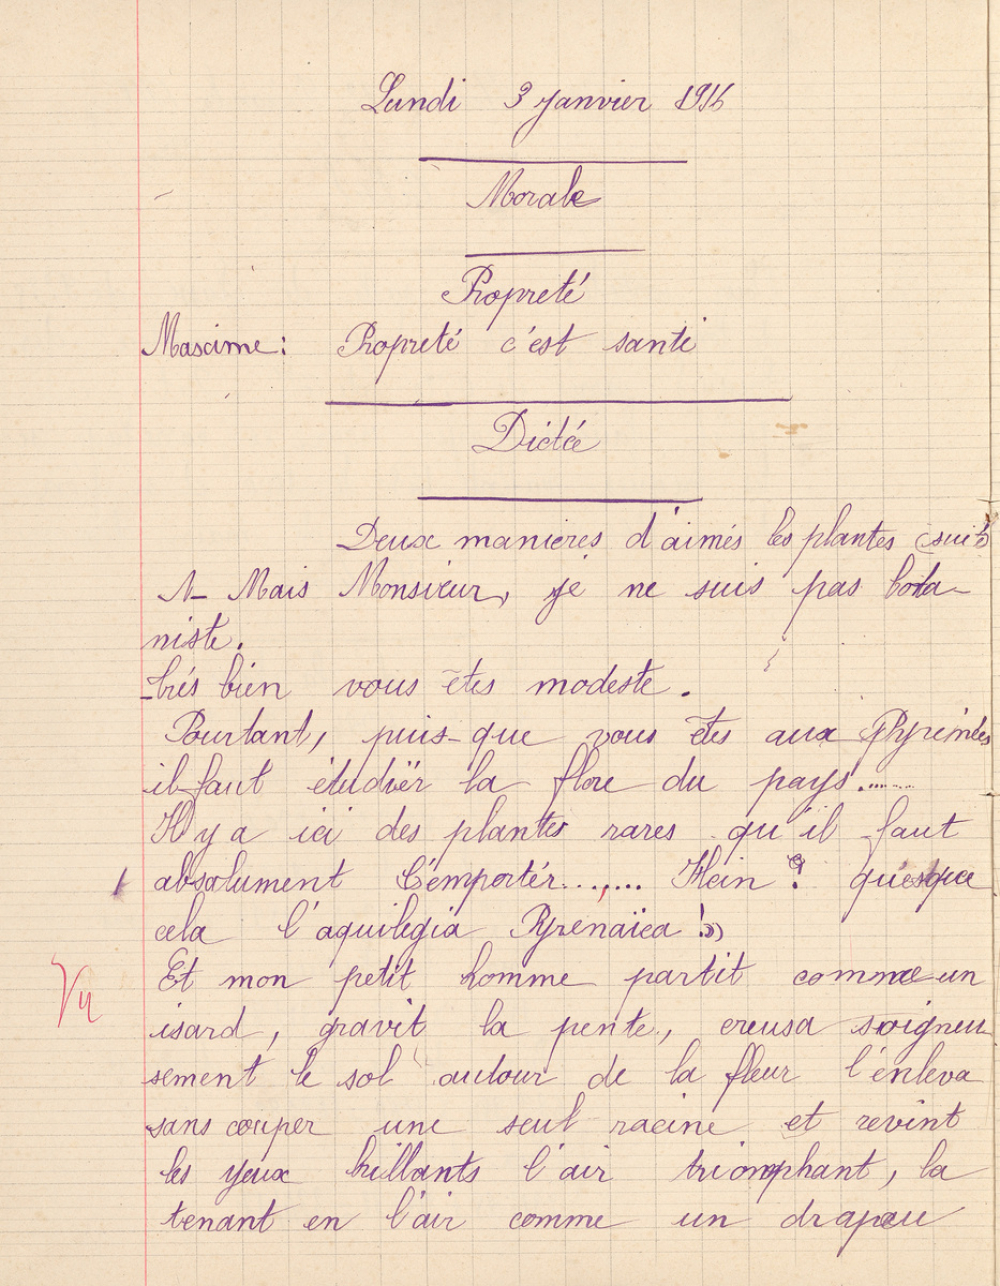 Lundi 3 janvier 1916
Morale
Propreté
Maxime : Propreté c'est santé
Dictée
Deux manieres d'aimés les plantes (suite)
— Mais Monsieur, je ne suis pas bota-
niste.
- Très bien vous êtes modeste.
Pourtant, puis-que vous êtes aux Pyrénées
il faut étudier la flore du pays........
Il y a ici des plantes rares qu'il faut
absolument l'emporter........ Hein ? qu'esque
cela l'aquilegia Pyrenaïca !»
Vu
Et mon petit homme partit comme un
isard, gravit la pente, creusa soigneu
sement le sol autour de la fleur l'enleva
sans couper une seul racine et revint
les yeux brillants l'air triomphant, la
tenant en l'air comme un drapeau